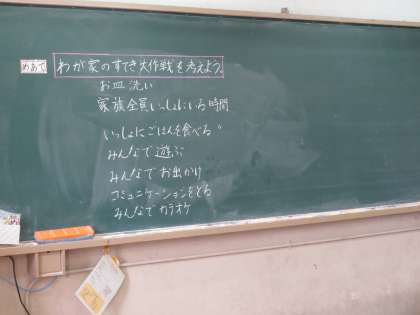 めあて わが家のすてき大作戦を考えよう。
お皿洗い
家族全員いっしょにいる時間
いっしょにごはんを食べる。
みんなで遊ぶ
みんなでお出かけ
コミュニケーションをとる
みんなでカラオケ